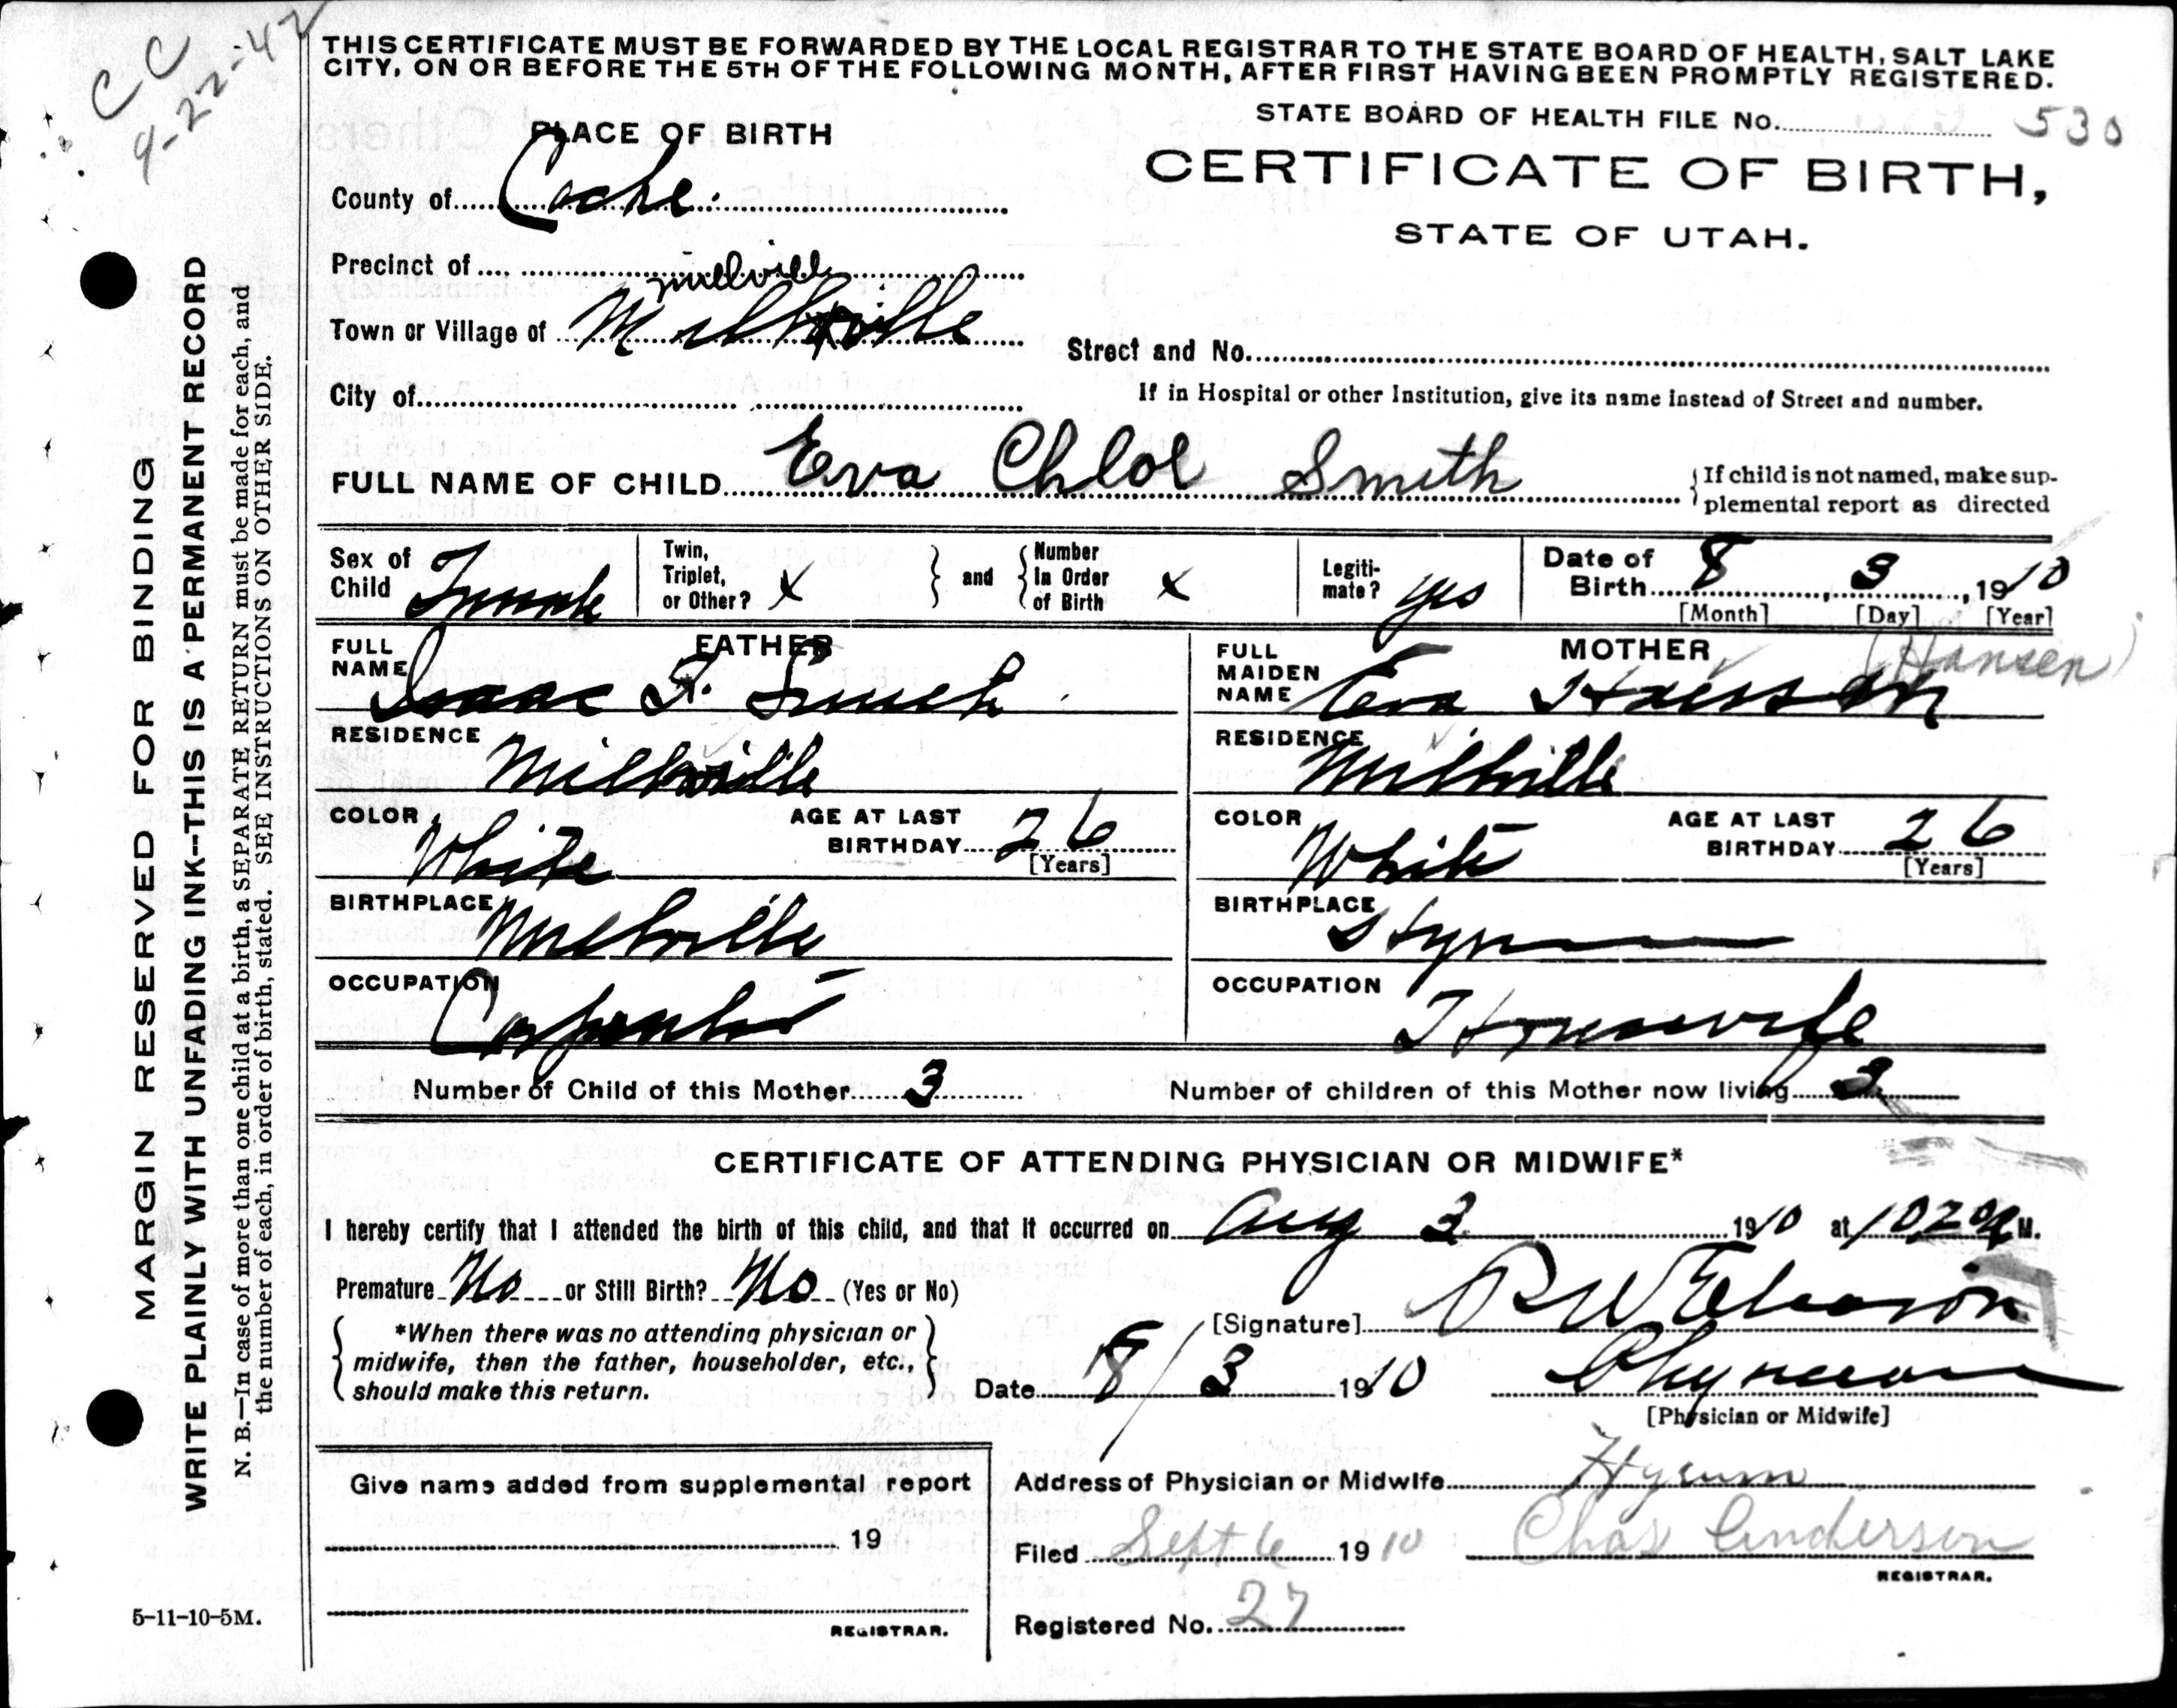 CC
9-22-42
THIS CERTIFICATE MUST BE FORWARDED BY THE LOCAL REGISTRAR TO THE STATE BOARD OF HEALTH, SALT LAKE
CITY, ON OR BEFORE THE 5TH OF THE FOLLOWING MONTH, AFTER FIRST HAVING BEEN PROMPTLY REGISTERED.
STATE BOARD OF HEALTH FILE No. 530
PLACE OF BIRTH
CERTIFICATE OF BIRTH,
STATE OF UTAH.
County of Cache.
Precinct of millville
Town or Village of Millville
Street and No.
City of
If in Hospital or other Institution, give its name instead of Street and number.
FULL NAME OF CHILD Eva Chloe Smith
If child is not named, make sup-
plemental report as directed
Sex of Child Female
Twin, Triplet, or Other? x
and
Number In Order of Birth x
Legiti-mate? yes
Date of Birth 8, 3, 1910
[Month] [Day] [Year]
FATHER
FULL NAME Isaac F. Smith
MOTHER (Hansen)
FULL MAIDEN NAME Eva Hansen
RESIDENCE Millville
RESIDENCE Millville
COLOR White
AGE AT LAST BIRTHDAY 26
[Years]
COLOR White
AGE AT LAST BIRTHDAY 26
[Years]
BIRTHPLACE Millville
BIRTHPLACE Hyrum
OCCUPATION Carpenter
OCCUPATION Housewife
Number of Child of this Mother 3
Number of children of this Mother now living 3
CERTIFICATE OF ATTENDING PHYSICIAN OR MIDWIFE*
I hereby certify that I attended the birth of this child, and that it occurred on Aug 3 1910 at 1020 a M.
Premature No or Still Birth? No (Yes or No)
*When there was no attending physician or
midwife, then the father, householder, etc.,
should make this return.
[Signature] P W Eliason
Date 8/3 1910 Physician
[Physician or Midwife]
Give name added from supplemental report
19
REGISTRAR.
Address of Physician or Midwife Hyrum
Filed Sept 6 1910 Chas Anderson
REGISTRAR.
Registered No. 27
5-11-10-5M.
MARGIN RESERVED FOR BINDING
WRITE PLAINLY WITH UNFADING INK--THIS IS A PERMANENT RECORD
N. B.—In case of more than one child at a birth, a SEPARATE RETURN must be made for each, and
the number of each, in order of birth, stated. SEE INSTRUCTIONS ON OTHER SIDE.